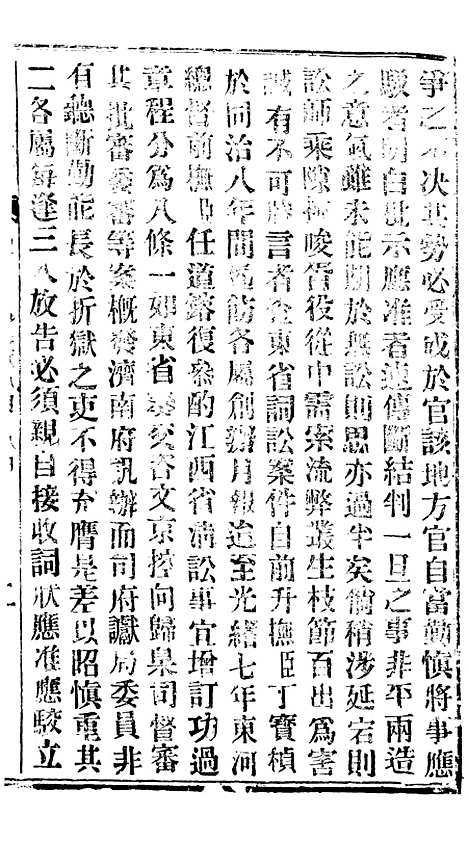 爭之不決其勢必受成於官該地方官自當勤慎將事應
駁者明白批示應准者速傳斷結判一旦之事非平兩造
之意氣雖未能期於無訟則思亦過半矣倘稍涉延宕則
訟師乘隙唆胥役從中需索流弊叢生枝節百出為害
誠有不可勝言者查東省詞訟案件自前升撫臣丁寶楨
於同治八年間通飭各屬創辦月報迨至光緒七年東河
總督前撫臣任道鎔復參酌江西省清訟事宜增訂功過
章程分為八條一如東省咨交咨文京控向歸臬司督審
其批審委審等案概發濟南府訊辦而司府讞局委員非
有聽斷勤能長於折獄之吏不得充膺是差以昭慎重其
二各屬每逢三八放告必須親自接收詞狀應准應駁立